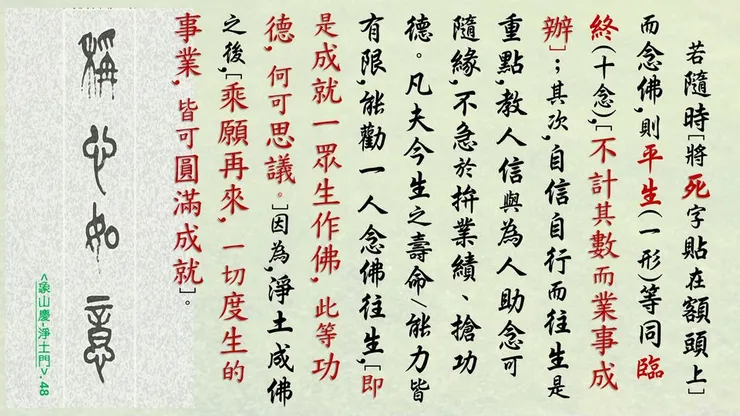 若隨時[將死字貼在額頭上]
而念佛,則平生(一形)等同臨
終(十念),[不計其數而業事成
辦];其次,自信自行而往生是
重點,教人信與為人助念可
隨緣,不急於拚業績、搶功
德。凡夫今生之壽命/能力皆
有限,能勸一人念佛往生,[即
是成就一眾生作佛,此等功
德,何可思議。]因為,淨土成佛
之後,[乘願再來,一切度生的
事業,皆可圓滿成就]。
稱心如意
<象山慶-淨土門>. 48